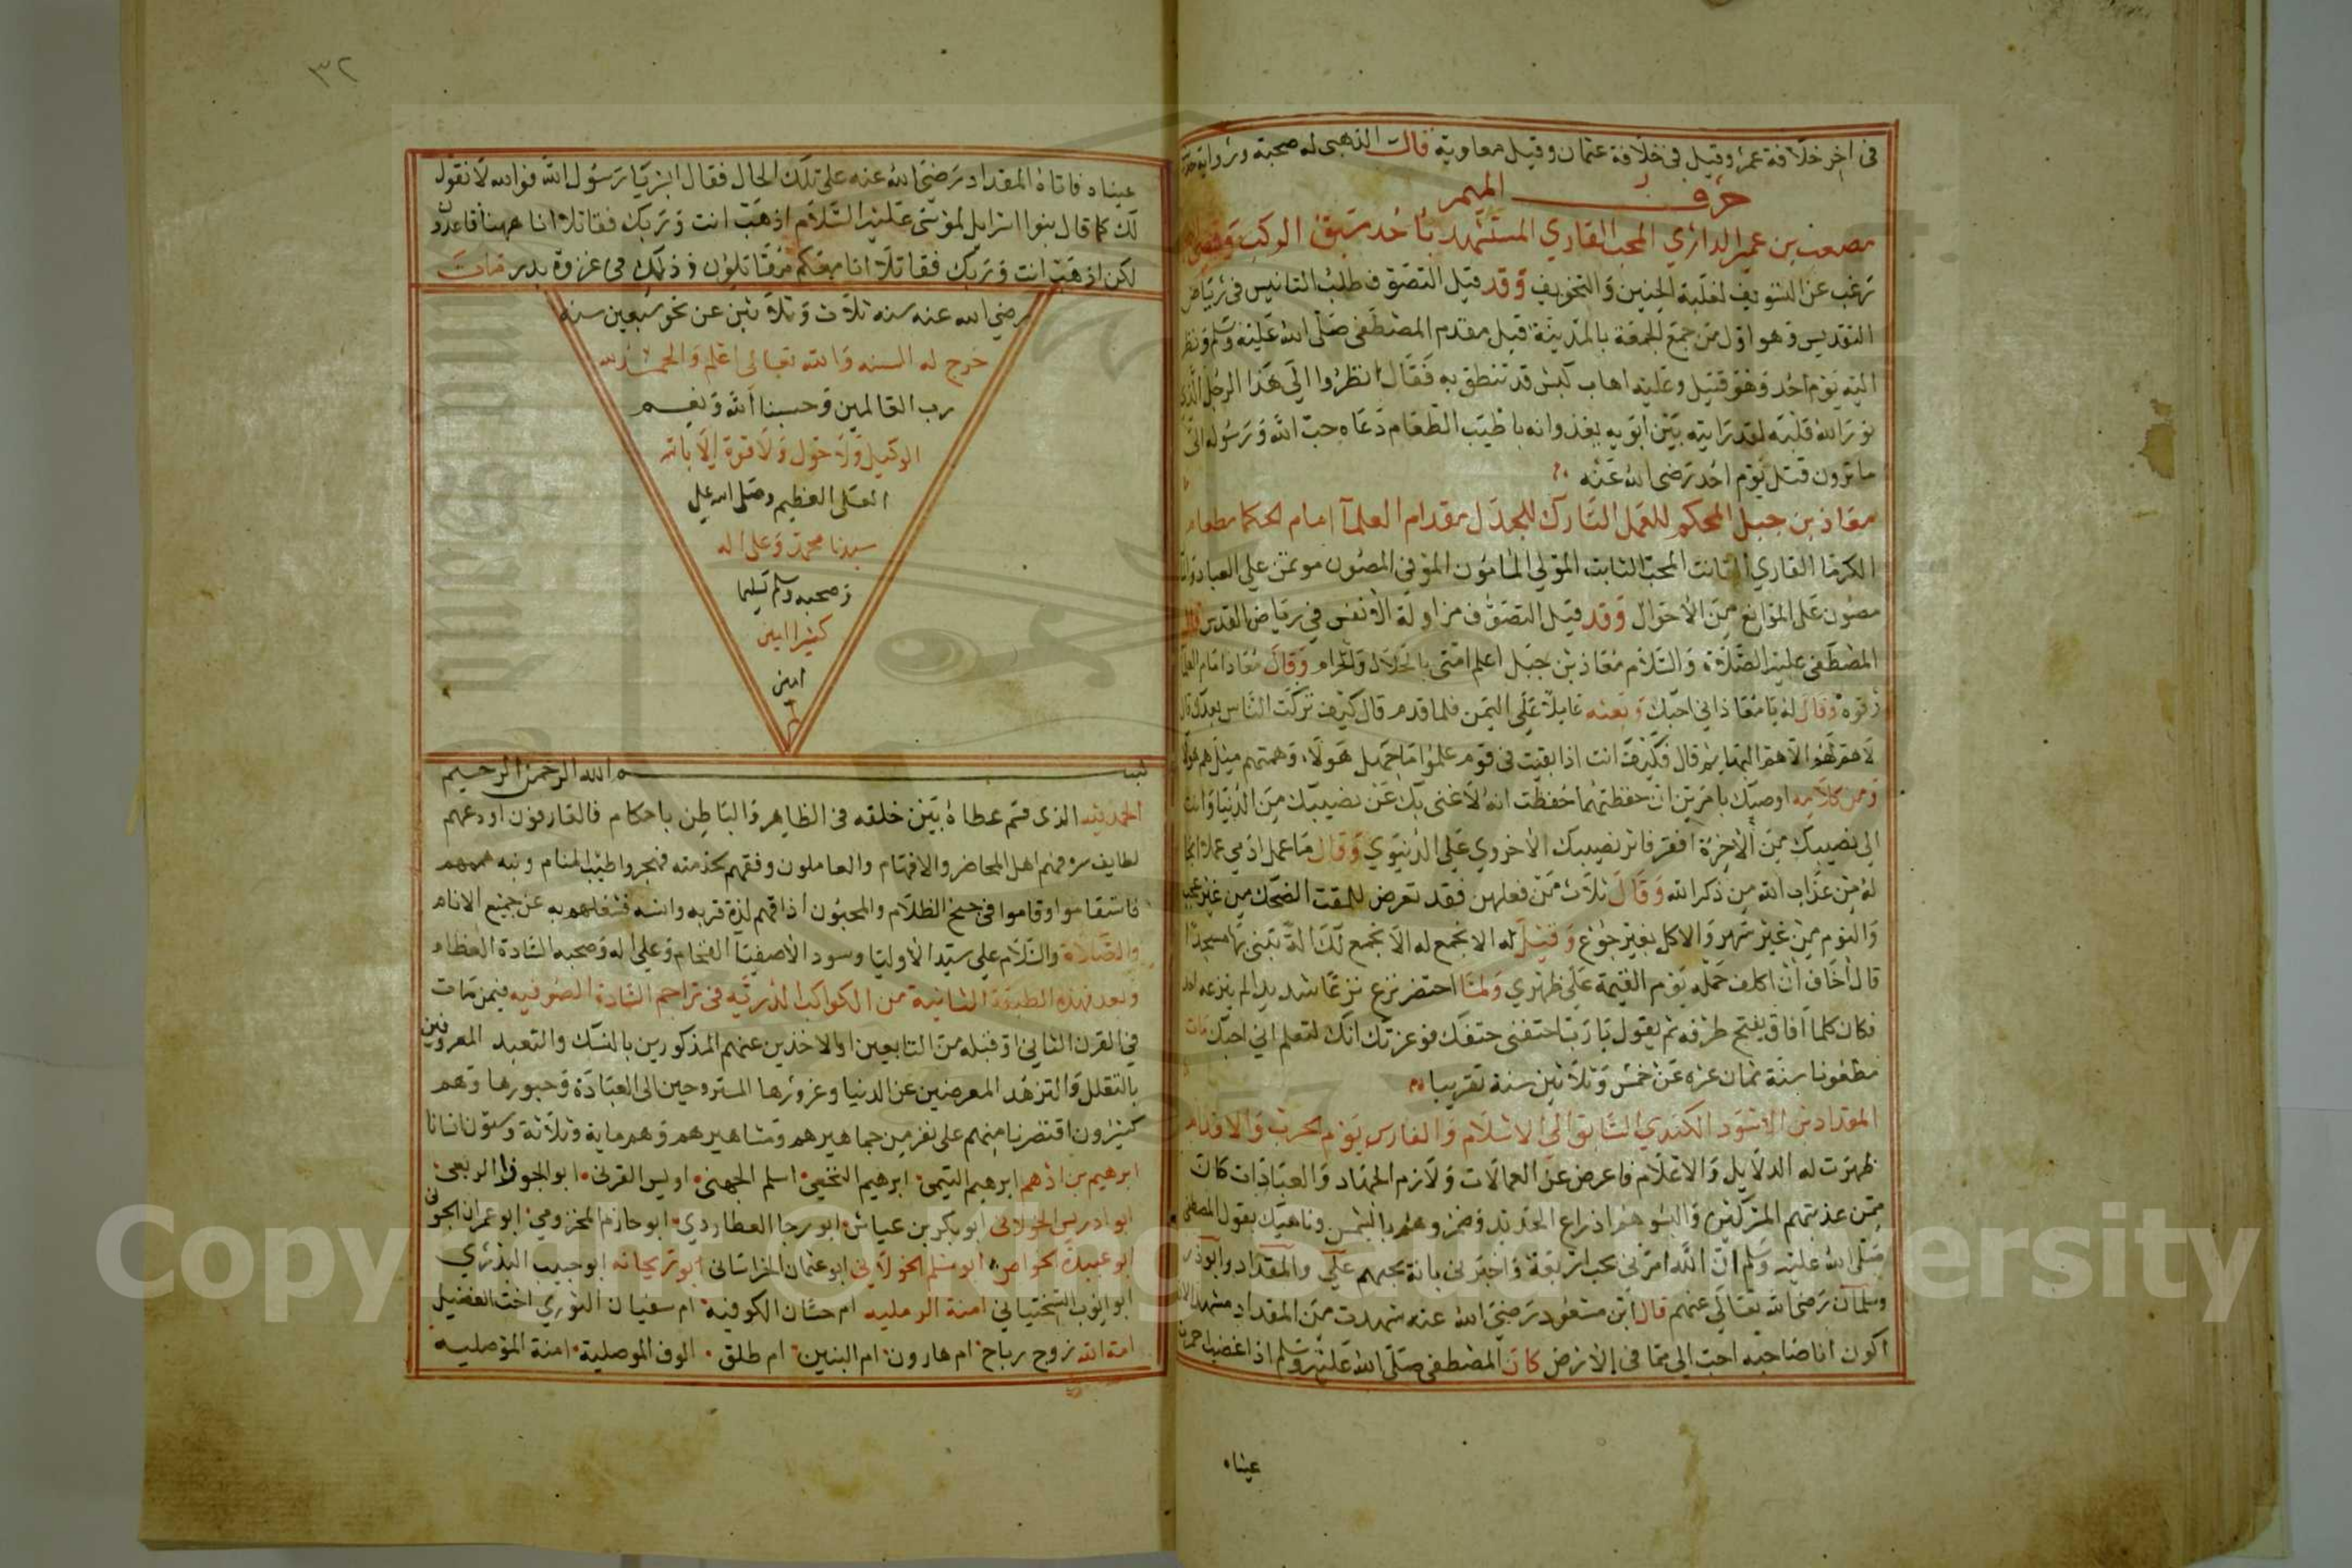 في اخر خلافة عمر وقيل في خلافة عثمان وقيل معاوية قال الذهبي له صحبة ورواية
حرف الميم
مصعب بن عمير الداري المحب القاري المستشهد باحد سبق الركب
ترغب عن التسويف لغلبة الحنين والتخويف وقد قيل التصوف طلب التانيس في رياض
التقديس وهو اول من جمع الجمعة بالمدينة قبل مقدم المصطفى صلى الله عليه وسلم ونظر
اليه يوم احد وهو قتيل وعليه اهاب كبش قد تنطق به فقال انظروا الى هذا الرجل الذي
نور الله قلبه لقد رايته بين ابويه يغذوانه باطيب الطعام دعاه حب الله ورسوله الى
ما ترون قتل يوم احد رضي الله عنه
معاذ بن جبل المحكم للعمل التارك للجدل مقدام العلما امام الحكما مطعام
الكرما القاري القانت المحب الثابت المولي المامون الموفي المصون موتمن علي العباد
مصون على الموانع من الاحوال وقد قيل التصوف مزاولة الانفس في رياض القدس قال
المصطفى عليه الصلاة والسلام معاذ بن جبل اعلم امتي بالحلال والحرام وقال معاذ امام العلما
وقال له يا معاذ اني احبك وبعثه عاملا على اليمن فلما قدم قال كيف تركت الناس بعدك قال
لا هم لهم الا هم البهايم قال فكيف انت اذا بقيت في قوم علموا ما جهل هولاء وهمتهم مثل هم هولا
ومن كلامه اوصيك بامرين ان حفظتهما حفظت انه لا غنى بك عن نصيبك من الدنيا وانت
الى نصيبك من الاخرة افقر فاثر نصيبك الاخروي على الدنيوي وقال ما عمل ادمي عملا انجا
له من عذاب الله من ذكر الله وقال ثلاث من فعلهن فقد تعرض للمقت الضحك من غير عجب
والنوم من غير سهر والاكل بغير جوع وقيل له الا نجمع لك تبني بها مسجدا
قال اخاف ان اكلف حمله يوم القيمة على ظهري ولما احتضر نزع نزعا شديدا لم ينزعه احد
فكان كلما افاق يفتح طرفه ثم يقول يا رب اختفني حتفك فوعزتك انك لتعلم اني احبك مات
مطعونا سنة ثمان عشره عن خمس وثلاثين سنة تقريبا
المقداد بن الاسود الكندي السابق الى الاسلام والفارس يوم الحرب والاقدام
ظهرت له الدلايل والاعلام فاعرض عن العمالات ولازم الجهاد والعبادات كان
ممن عذبتهم المشركون والبسوهم ادراع الحديد وصهروهم بالشمس وناهيك بقول المصطفى
صلى الله عليه وسلم ان الله امرني بحب اربعة واخبرني بانه يحبهم علي والمقداد وابو ذر
وسلمان رضي الله تعالى عنهم قال ابن مسعود رضي الله عنه شهدت من المقداد مشهدا لان
اكون انا صاحبه احب الي مما في الارض كان المصطفى صلى الله عليه وسلم اذا اغضب احمرت
عيناه
٣٢
عيناه فاتاه المقداد رضي الله عنه على تلك الحال فقال ابشر يا رسول الله فوالله لا نقول
لك كما قال بنوا اسرايل لموسى عليه السلام اذهب انت وربك فقاتلا انا ههنا قاعدون
لكن اذهب انت وربك فقاتلا انا معكم مقاتلون وذلك في غزوة بدر مات
رضي الله عنه سنة ثلاث وثلاثين عن نحو سبعين سنة
خرج له الستة والله تعالى اعلم والحمد لله
رب العالمين وحسبنا الله ونعم
الوكيل ولا حول ولا قوة الا بالله
العلي العظيم وصلى الله علي
سيدنا محمد وعلى اله
وصحبه وسلم تسليما
كثيرا امين
امين
بسم الله الرحمن الرحيم
الحمد لله الذي قسم عطاه بين خلقه في الظاهر والباطن باحكام فالعارفون اودعهم
لطايف سر وفهم اهل المحاضر والافهام والعاملون وفقهم لخدمته فهجروا طيب المنام ونبه هممهم
فاستقاموا وقاموا في جنح الظلام والمحبون اذاقهم لذة قربه وانسه فشغلهم به عن جميع الانام
والصلاة والسلام على سيد الاوليا وسود الاصفيا الفخام وعلى اله وصحبه السادة العظام
وبعد فهذه الطبقة الثانية من الكواكب الدرية في تراجم السادة الصوفية فيمن مات
في القرن الثاني او قبله من التابعين او الاخذين عنهم المذكورين بالنسك والتعبد المعروفين
بالتقلل والتزهد المعرضين عن الدنيا وغرورها المستروحين الى العبادة وحبورها وهم
كثيرون اقتصرنا منهم على نفر من جماهيرهم ومشاهيرهم وهم ماية وثلاثة وستون انسانا
ابرهيم بن ادهم ابرهيم التيمي ابرهيم النخعي اسلم الجهني اويس القرني ابو الجوزا الربعي
ابو ادريس الخولاني ابو بكر بن عياش ابو رجا العطاردي ابو حازم المخزومي ابو عمران الجوني
ابو عبيدة الخواص ابو مسلم الخولاني ابو عثمان الخراساني ابو ريحانه ابو حبيب البدري
ابو ايوب السختياني امنة الرملية ام حسان الكوفية ام سفيان الثوري اخت الفضيل
امة الله زوج رباح ام هارون ام البنين ام طلق الوف الموصلية امنة الموصلية
Copyright © King Saud University